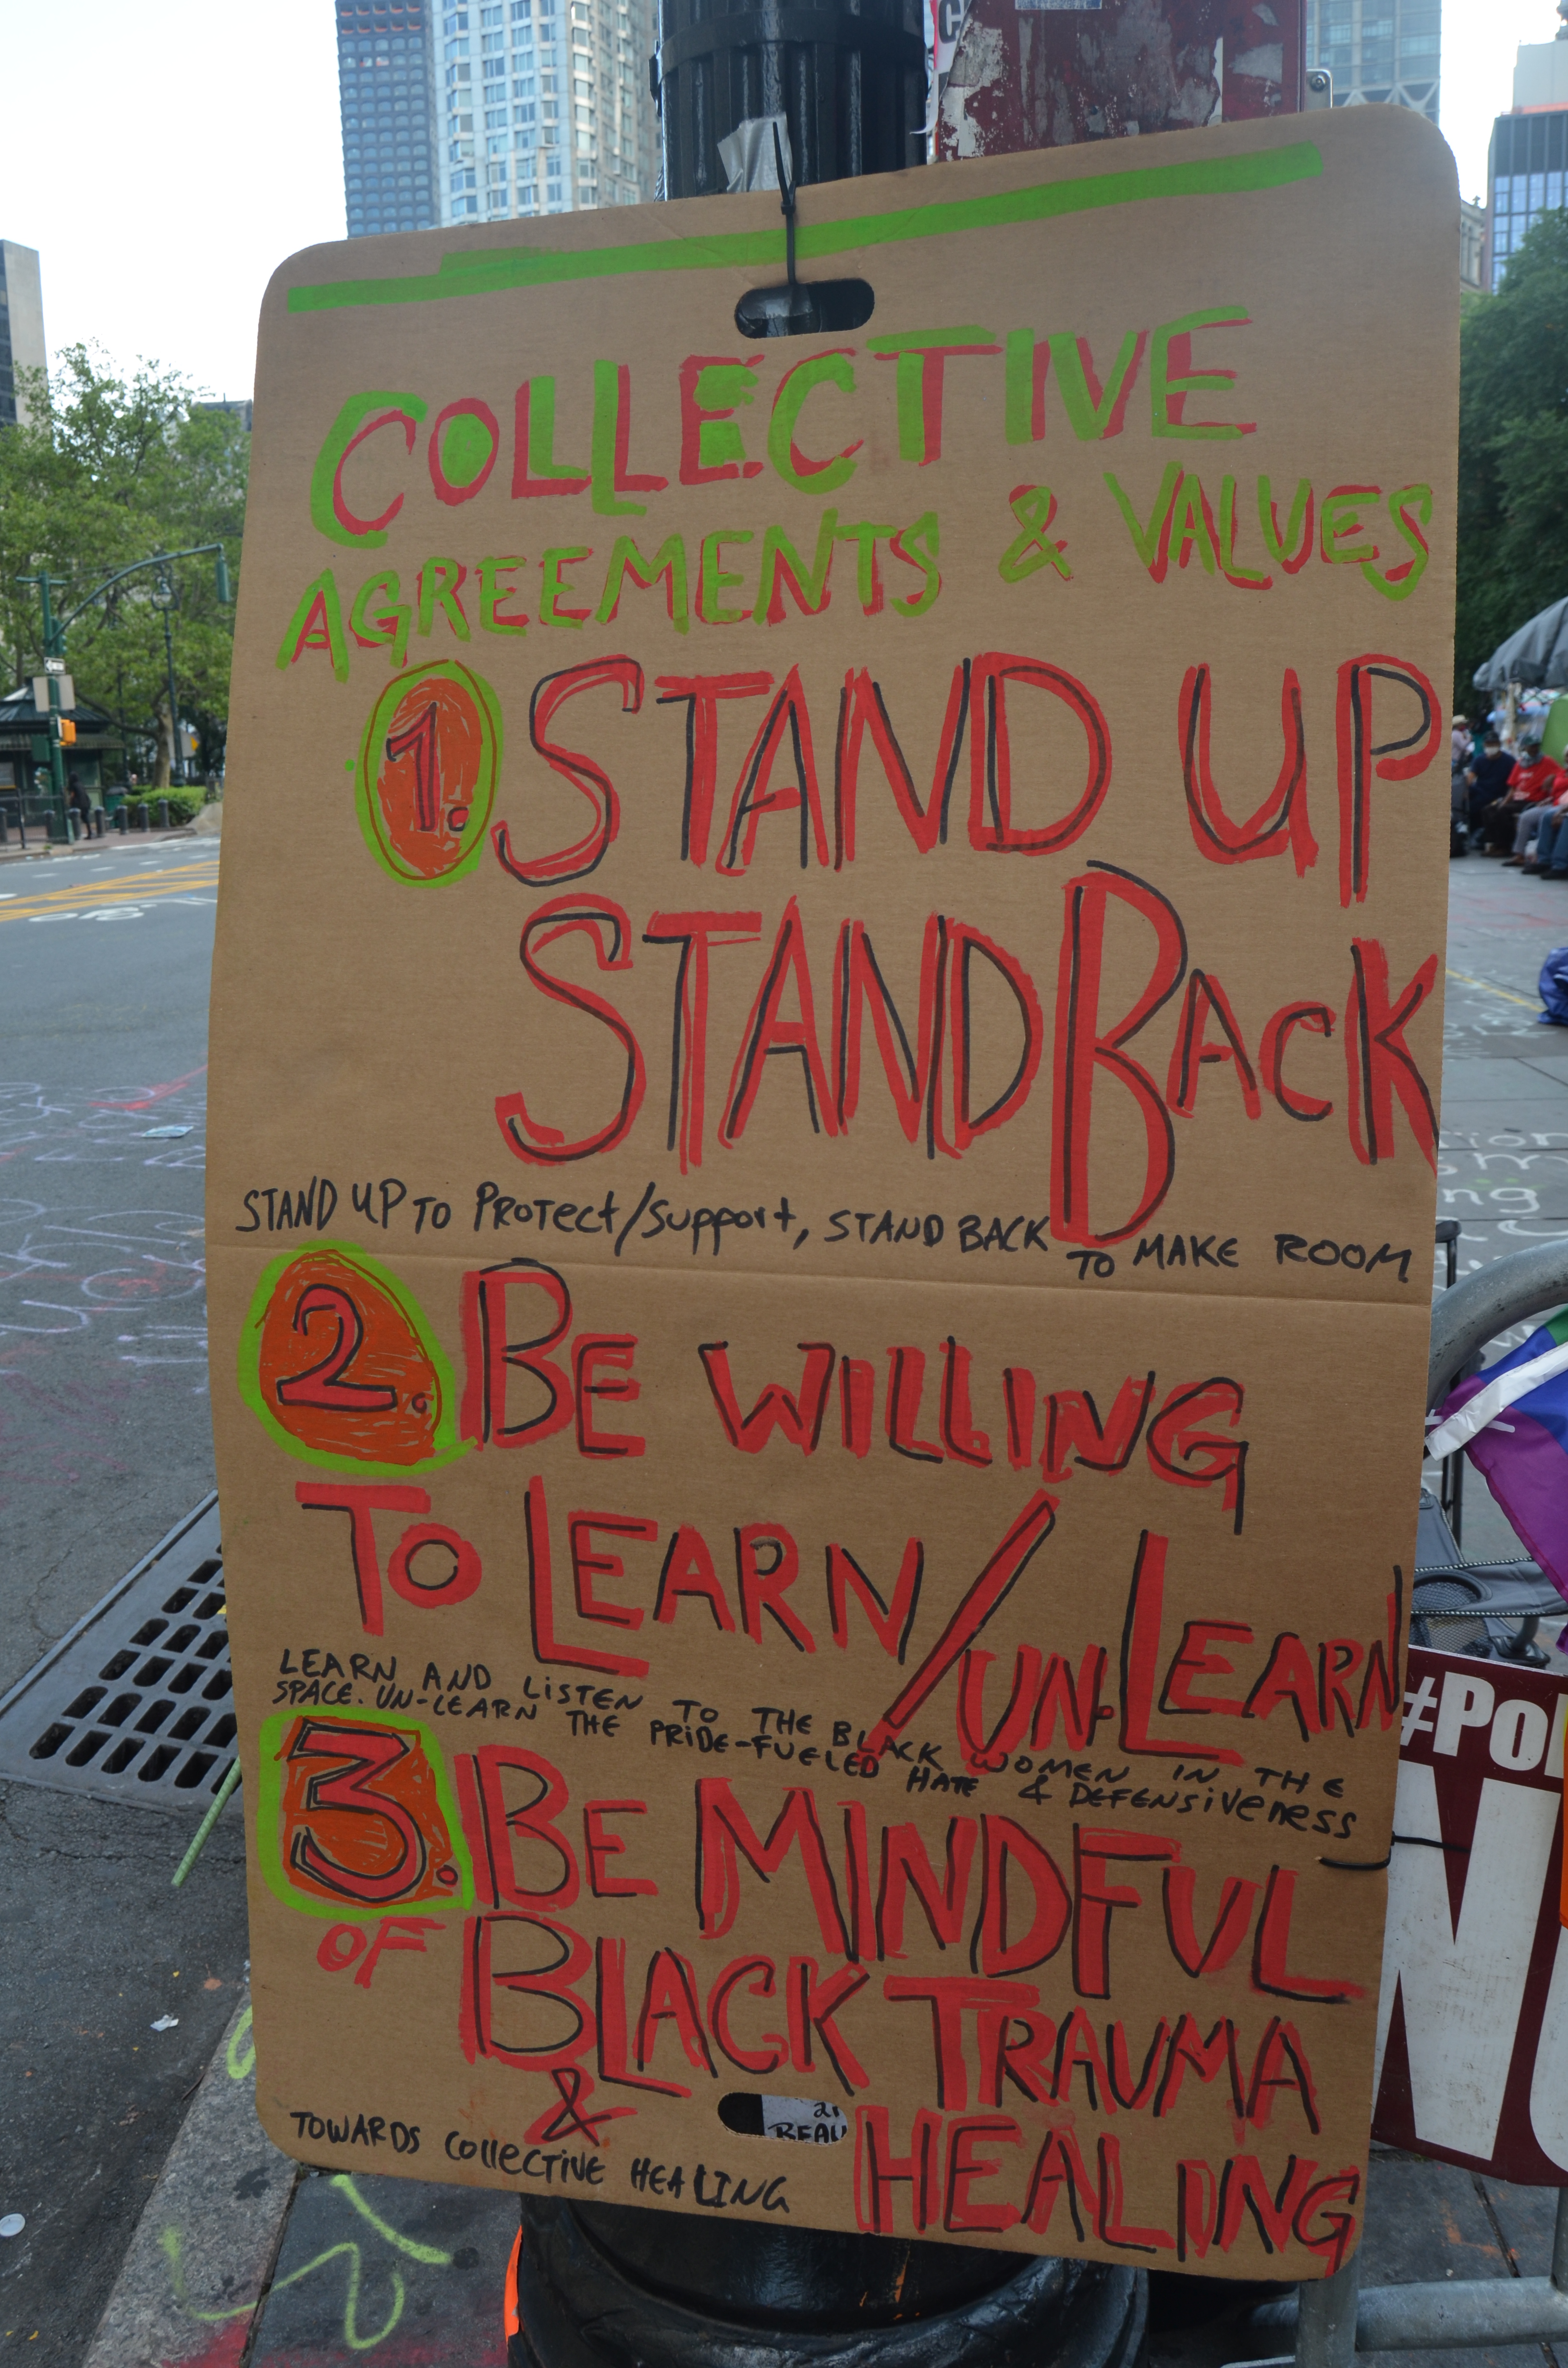 COLLECTIVE
AGREEMENTS & VALUES
1. STAND UP
STAND BACK
STAND UP TO PROTECT/SUPPORT, STAND BACK TO MAKE ROOM
2. BE WILLING
TO LEARN/UN-LEARN
LEARN AND LISTEN TO THE BLACK WOMEN IN THE
SPACE. UN-LEARN THE PRIDE-FUELED HATE & DEFENSIVENESS
3. BE MINDFUL
OF BLACK TRAUMA
& HEALING
TOWARDS COLLECTIVE HEALING
#Pol